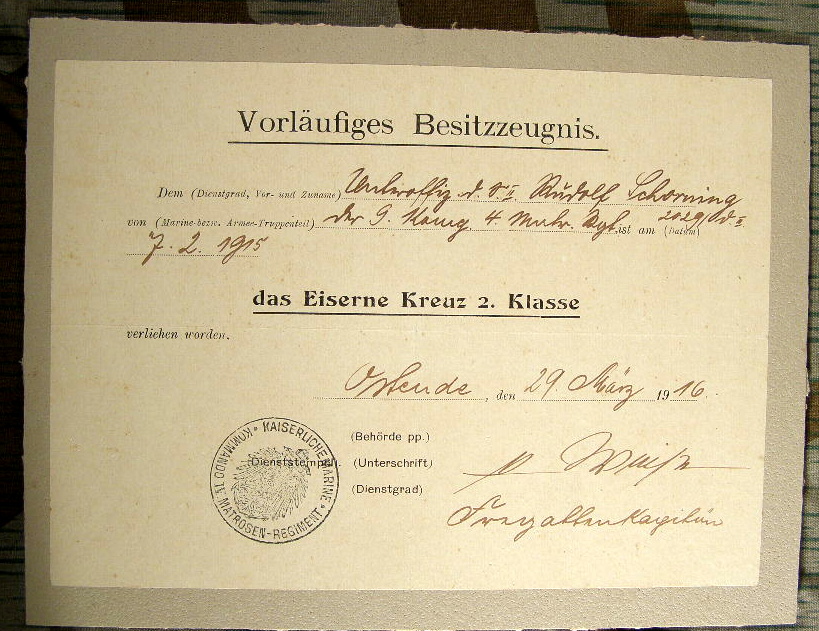 Vorläufiges Besitzzeugnis.
Dem (Dienstgrad, Vor- und Zuname) Unteroffiz. d. S. II Rudolf Schorning
von (Marine- bezw. Armee-Truppenteil) der 9. Komp. 4. Matr. Rgt. ist am (Datum)
7. 2. 1915
das Eiserne Kreuz 2. Klasse
verliehen worden.
Ostende, den 29. März 1916.
(Behörde pp.)
Dienststempel. (Unterschrift)
(Dienstgrad)
Fregattenkapitän
KAISERLICHE MARINE * KOMMANDO IV MATROSEN-REGIMENT *